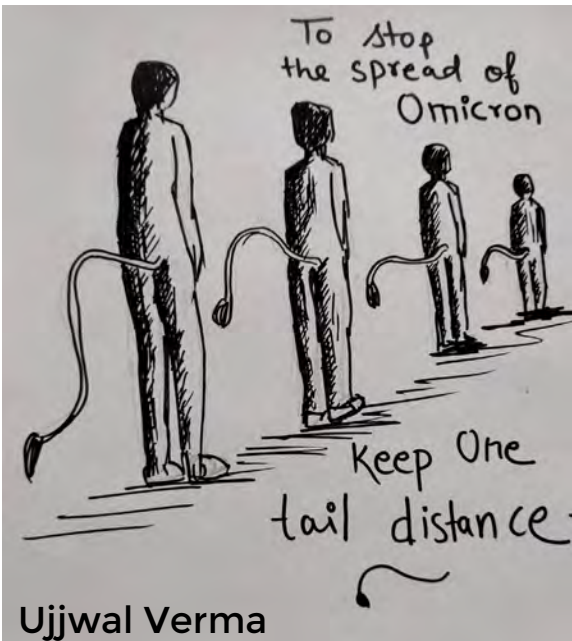 To stop
the spread of
Omicron
Keep One
tail distance
Ujjwal Verma